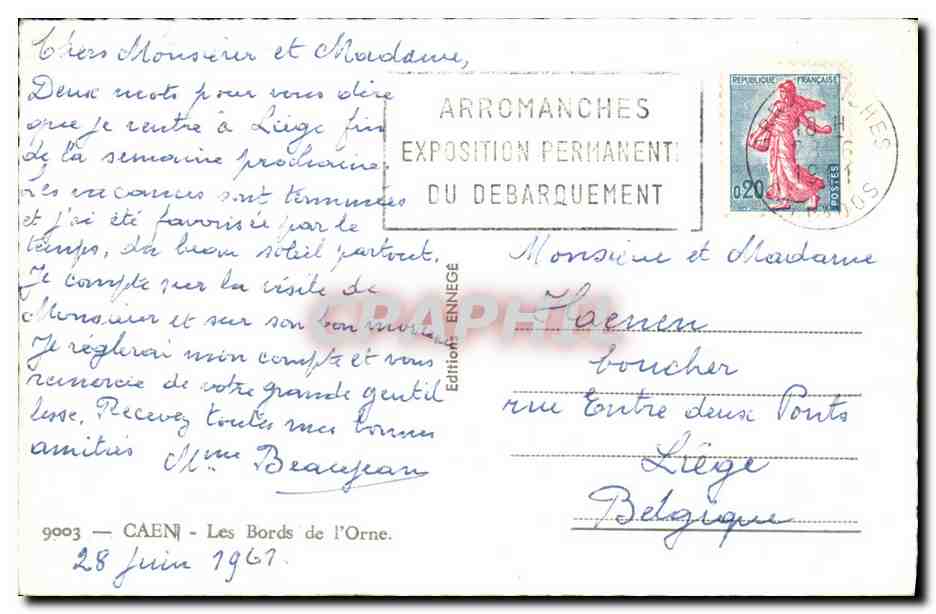 Chers Monsieur et Madame,
Deux mots pour vous dire
que je rentre à Liège fin
de la semaine prochaine
Les vacances sont terminées
et j'ai été favorisée par le
temps, du beau soleil partout.
Je compte sur la visite de
Monsieur et sur son bon
Je réglerai mon compte et vous
remercie de votre grande gentil
lesse. Recevez toutes mes bonnes
amitiés Mme Beaujean
9003 — CAEN - Les Bords de l'Orne.
28 Juin 1961.
Editions ENNEGÉ
ARROMANCHES
EXPOSITION PERMANENTE
DU DEBARQUEMENT
REPUBLIQUE FRANÇAISE
0,20
POSTES
Monsieur et Madame
Haenen
boucher
rue Entre deux Ponts
Liège
Belgique
CPAPHIL